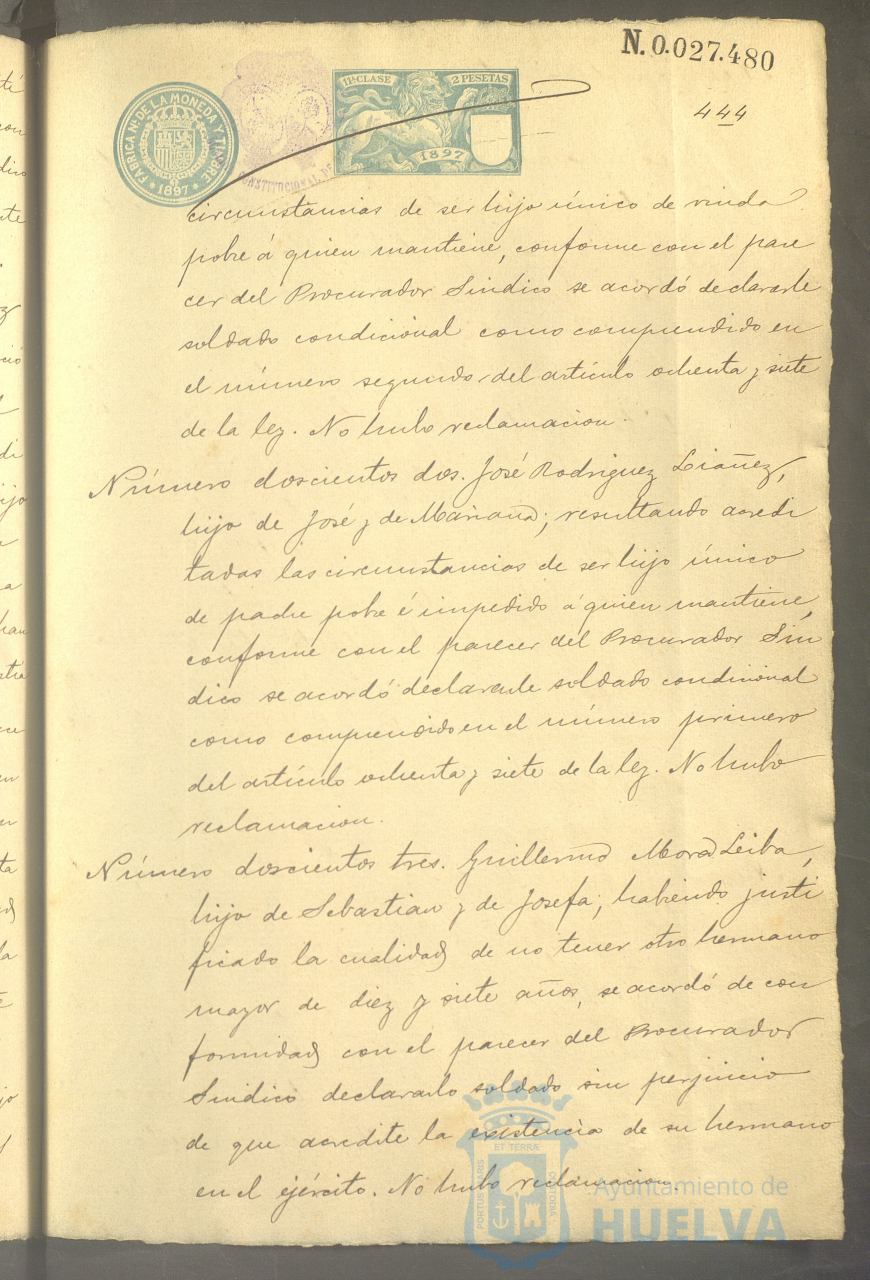 N. 0.027.480
444
FABRICA N. DE LA MONEDA Y TIMBRE
1897
CONSTITUCIONAL DE
11ª CLASE 2 PESETAS
1897
circunstancias de ser hijo único de viuda
pobre á quien mantiene, conforme con el pare
cer del Procurador Sindico se acordó declararle
soldado condicional como comprendido en
el número segundo del artículo ochenta y siete
de la ley. No hubo reclamacion.
Número doscientos dos. José Rodriguez Liáñez,
hijo de José y de Mariana; resultando acredi
tadas las circunstancias de ser hijo único
de padre pobre é impedido á quien mantiene,
conforme con el parecer del Procurador Sín
dico se acordó declararle soldado condicional
como comprendido en el número primero
del artículo ochenta y siete de la ley. No hubo
reclamacion.
Número doscientos tres. Guillermo Mora Leiba,
hijo de Sebastian y de Josefa; habiendo justi
ficado la cualidad de no tener otro hermano
mayor de diez y siete años, se acordó de con
formidad con el parecer del Procurador
Sindico declararlo soldado sin perjuicio
de que acredite la existencia de su hermano
en el ejército. No hubo reclamacion.
ET TERRÆ
PORTUS MARIS
CUSTODIA
Ayuntamiento de
HUELVA